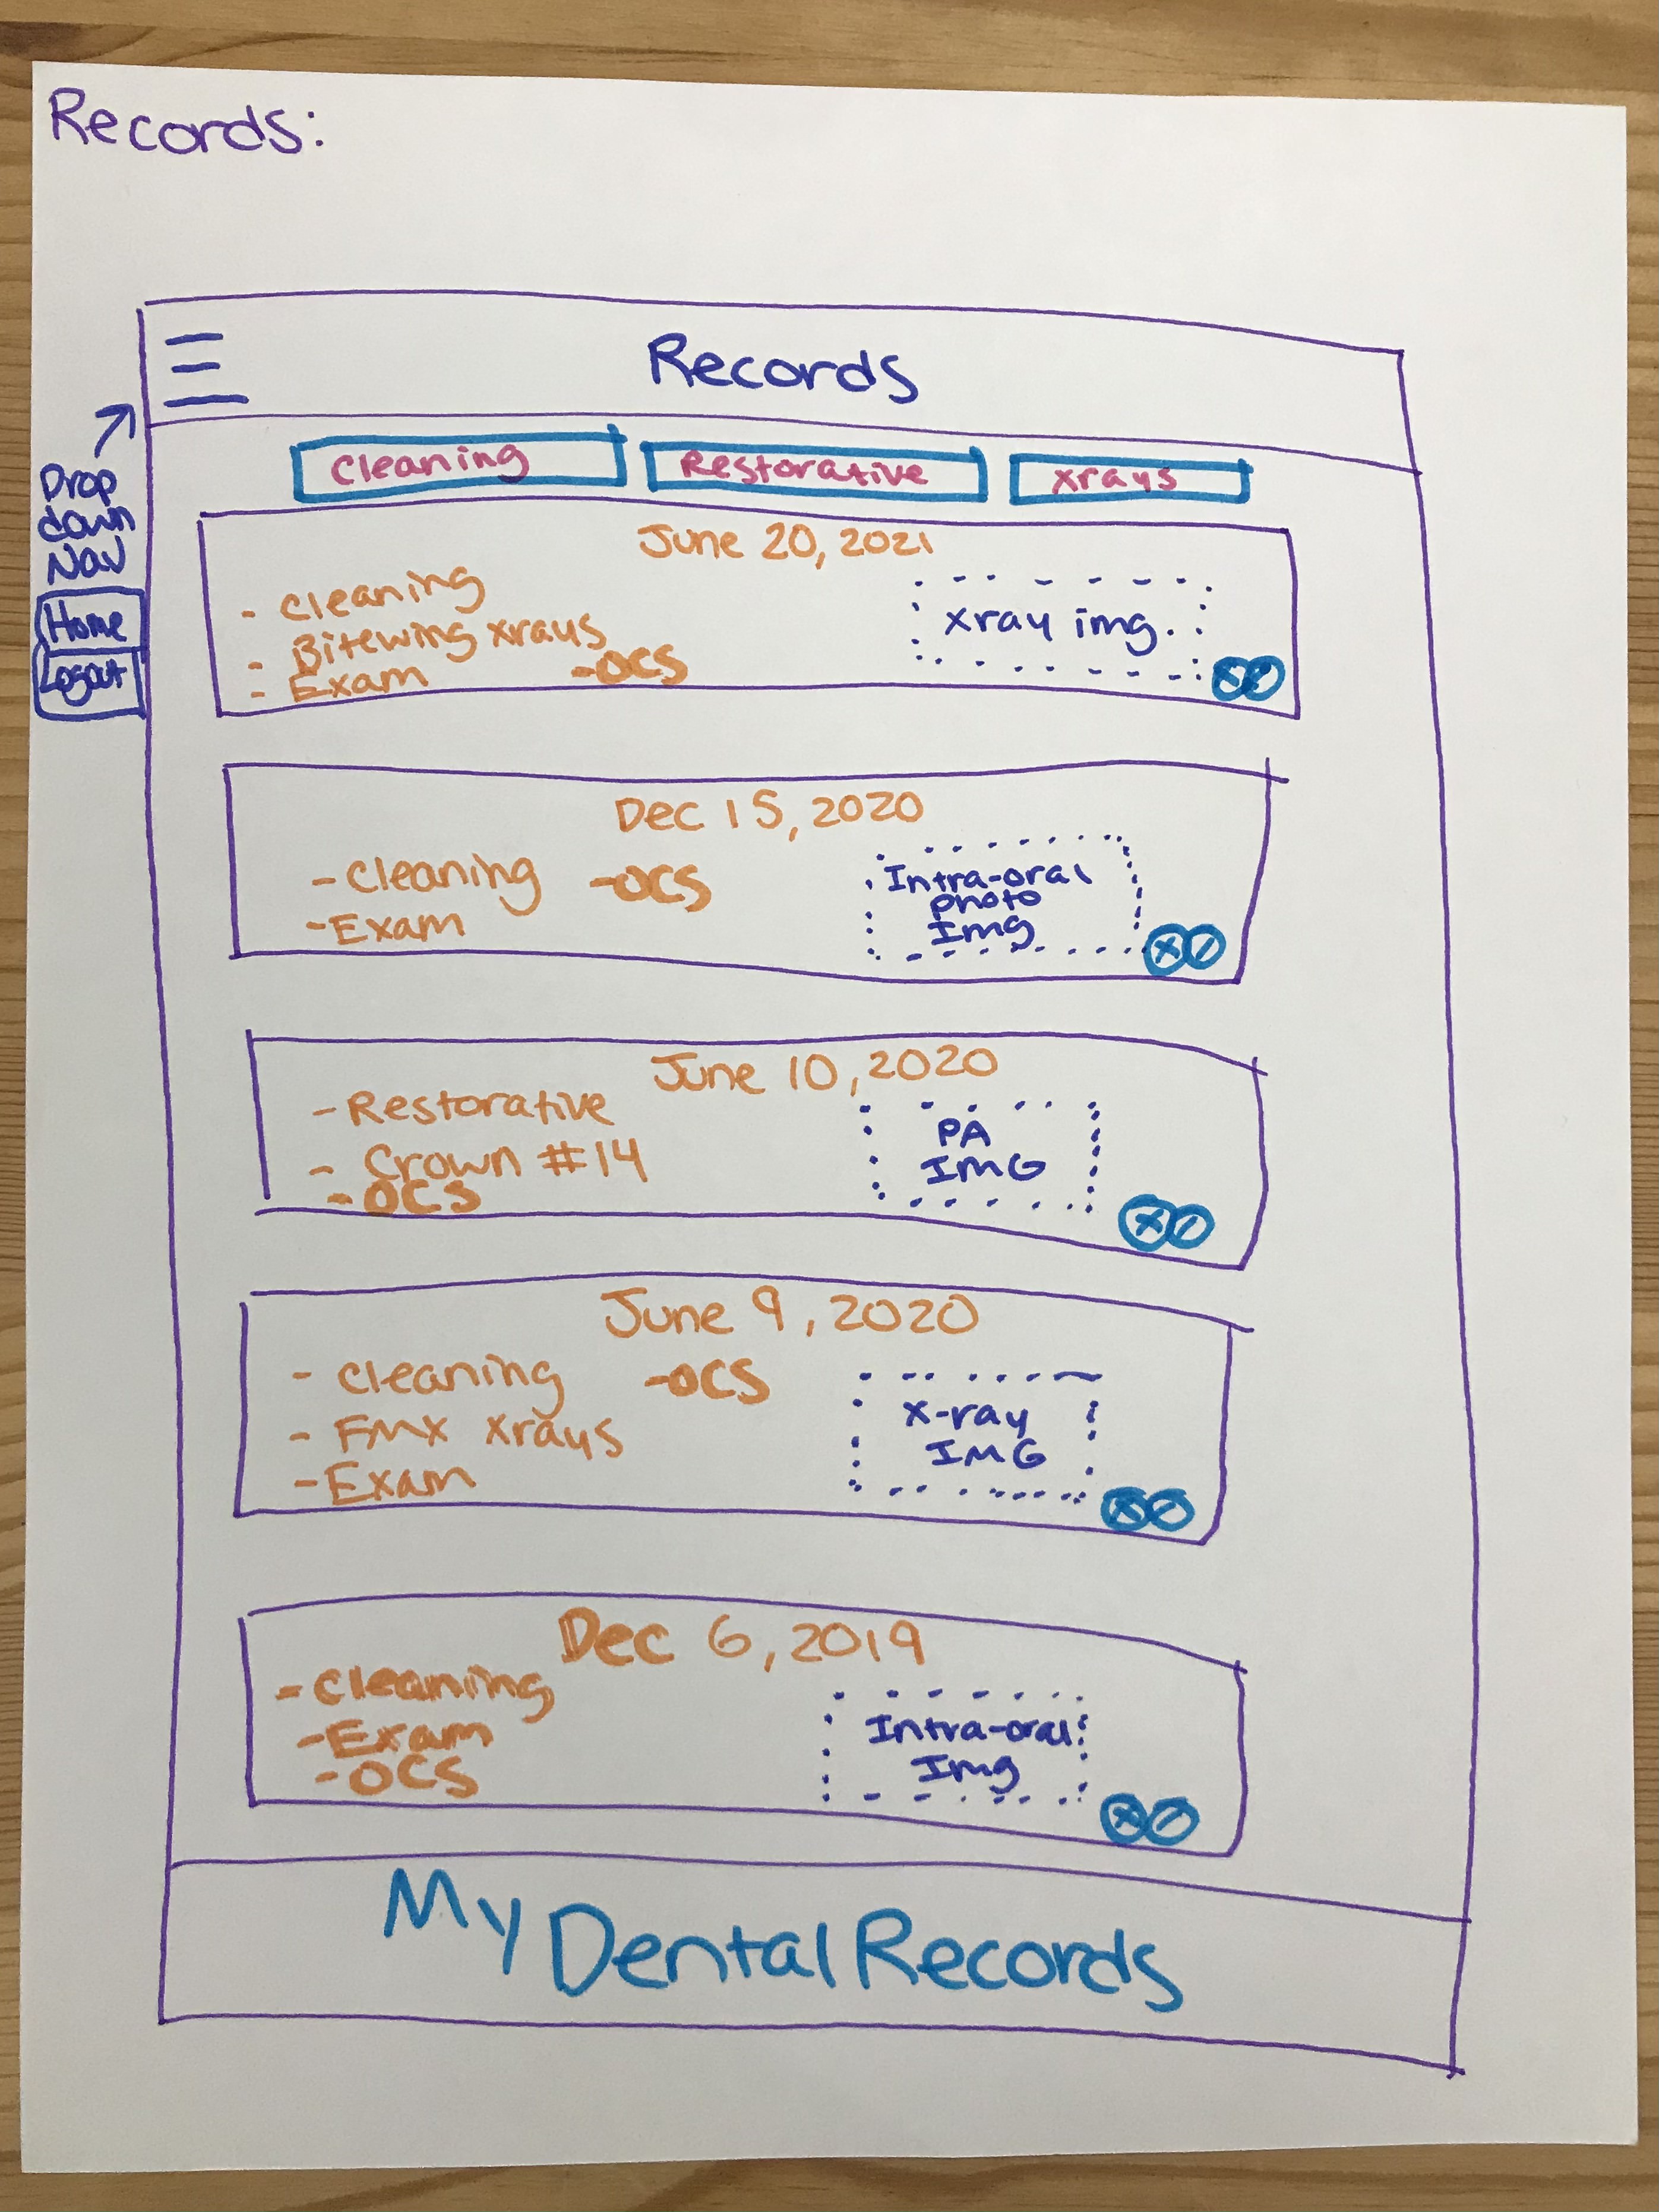 Records:
Records
Drop
down
Nav
Home
Logout
Cleaning
Restorative
xrays
June 20, 2021
- Cleaning
- Bitewing xrays
- Exam
-OCS
xray img.
Dec 15, 2020
-Cleaning
-OCS
-Exam
Intra-oral
photo
Img
June 10, 2020
-Restorative
- Crown #14
-OCS
PA
IMG
June 9, 2020
- Cleaning
-OCS
- FMX Xrays
-Exam
X-ray
IMG
Dec 6, 2019
-Cleaning
-Exam
-OCS
Intra-oral
Img
My Dental Records